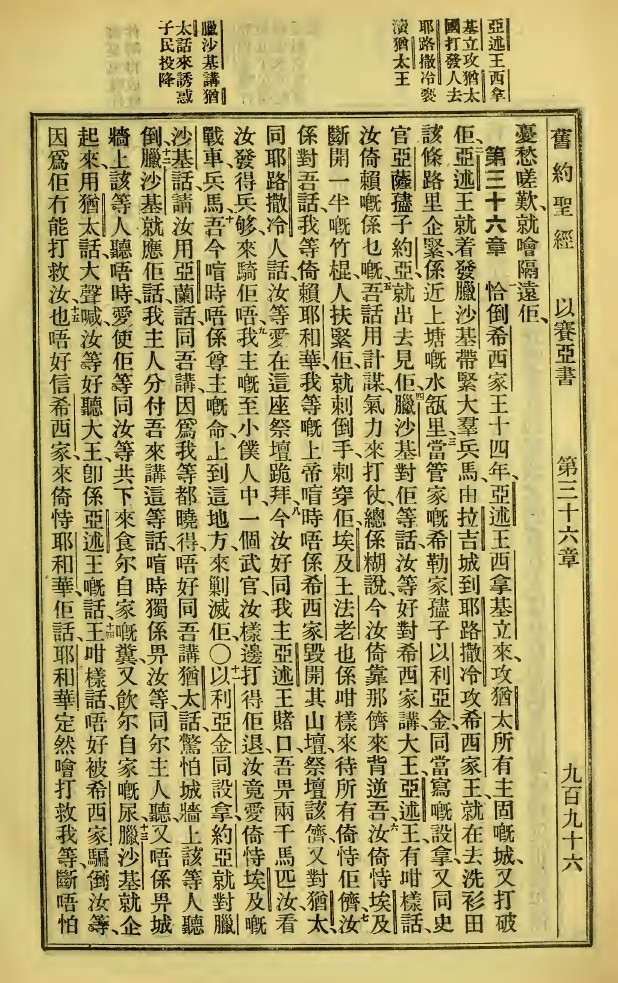 舊約聖經　以賽亞書　第三十六章　九百九十六
亞述王西拿
基立攻猶太
國打發人去
耶路撒冷褻
瀆猶太王
臘沙基講猶
太話來誘惑
子民投降
憂愁嗟歎、就噲隔遠佢、
第三十六章　一恰倒希西家王十四年、亞述王西拿基立來攻猶太所有主固嘅城、又打破
佢、二亞述王就着發臘沙基帶緊大羣兵馬、由拉吉城到耶路撒冷攻希西家王、就在去洗衫田
該條路里企緊、係近上塘嘅水瓻里、三當管家嘅希勒家孻子以利亞金、同當寫嘅設拿、又同史
官亞薩孻子約亞、就出去見佢、四臘沙基對佢等話、汝等好對希西家講、大王亞述王有咁樣話、
汝倚賴嘅係乜嘅、五吾話用計謀氣力來打仗、總係糊說、今汝倚靠那儕來背逆吾、六汝倚恃埃及
斷開一半嘅竹棍、人扶緊佢、就刺倒手、刺穿佢、埃及王法老也係咁樣來待所有倚恃佢儕、七汝
係對吾話、我等倚賴耶和華我等嘅上帝、喧時唔係希西家毀開其山壇祭壇該儕、又對猶太
同耶路撒冷人話、汝等愛在這座祭壇跪拜、八今汝好同我主亞述王賭口、吾畀兩千馬匹汝、看
汝發得兵够來騎佢唔、九我主嘅至小僕人中、一個武官、汝樣邊打得佢退、汝竟愛倚恃埃及嘅
戰車兵馬、十吾今喧時唔係尊主嘅命、上到這地方來剿滅佢、〇十一以利亞金同設拿約亞就對臘
沙基話、請汝用亞蘭話同吾講、因爲我等都曉得、唔好同吾講猶太話、驚怕城牆上該等人聽
倒、十二臘沙基就應佢話、我主人分付吾來講這等話、喧時獨係畀汝等同尔主人聽、又唔係畀城
牆上該等人聽唔時、愛使佢等同汝等共下來食尔自家嘅糞、又飲尔自家嘅尿、十三臘沙基就企
起來、用猶太話大聲喊、汝等好聽大王、卽係亞述王嘅話、十四王咁樣話、唔好被希西家騙倒汝等、
因爲佢冇能打救汝、十五也唔好信希西家、來倚恃耶和華、佢話、耶和華定然噲打救我等、斷唔怕